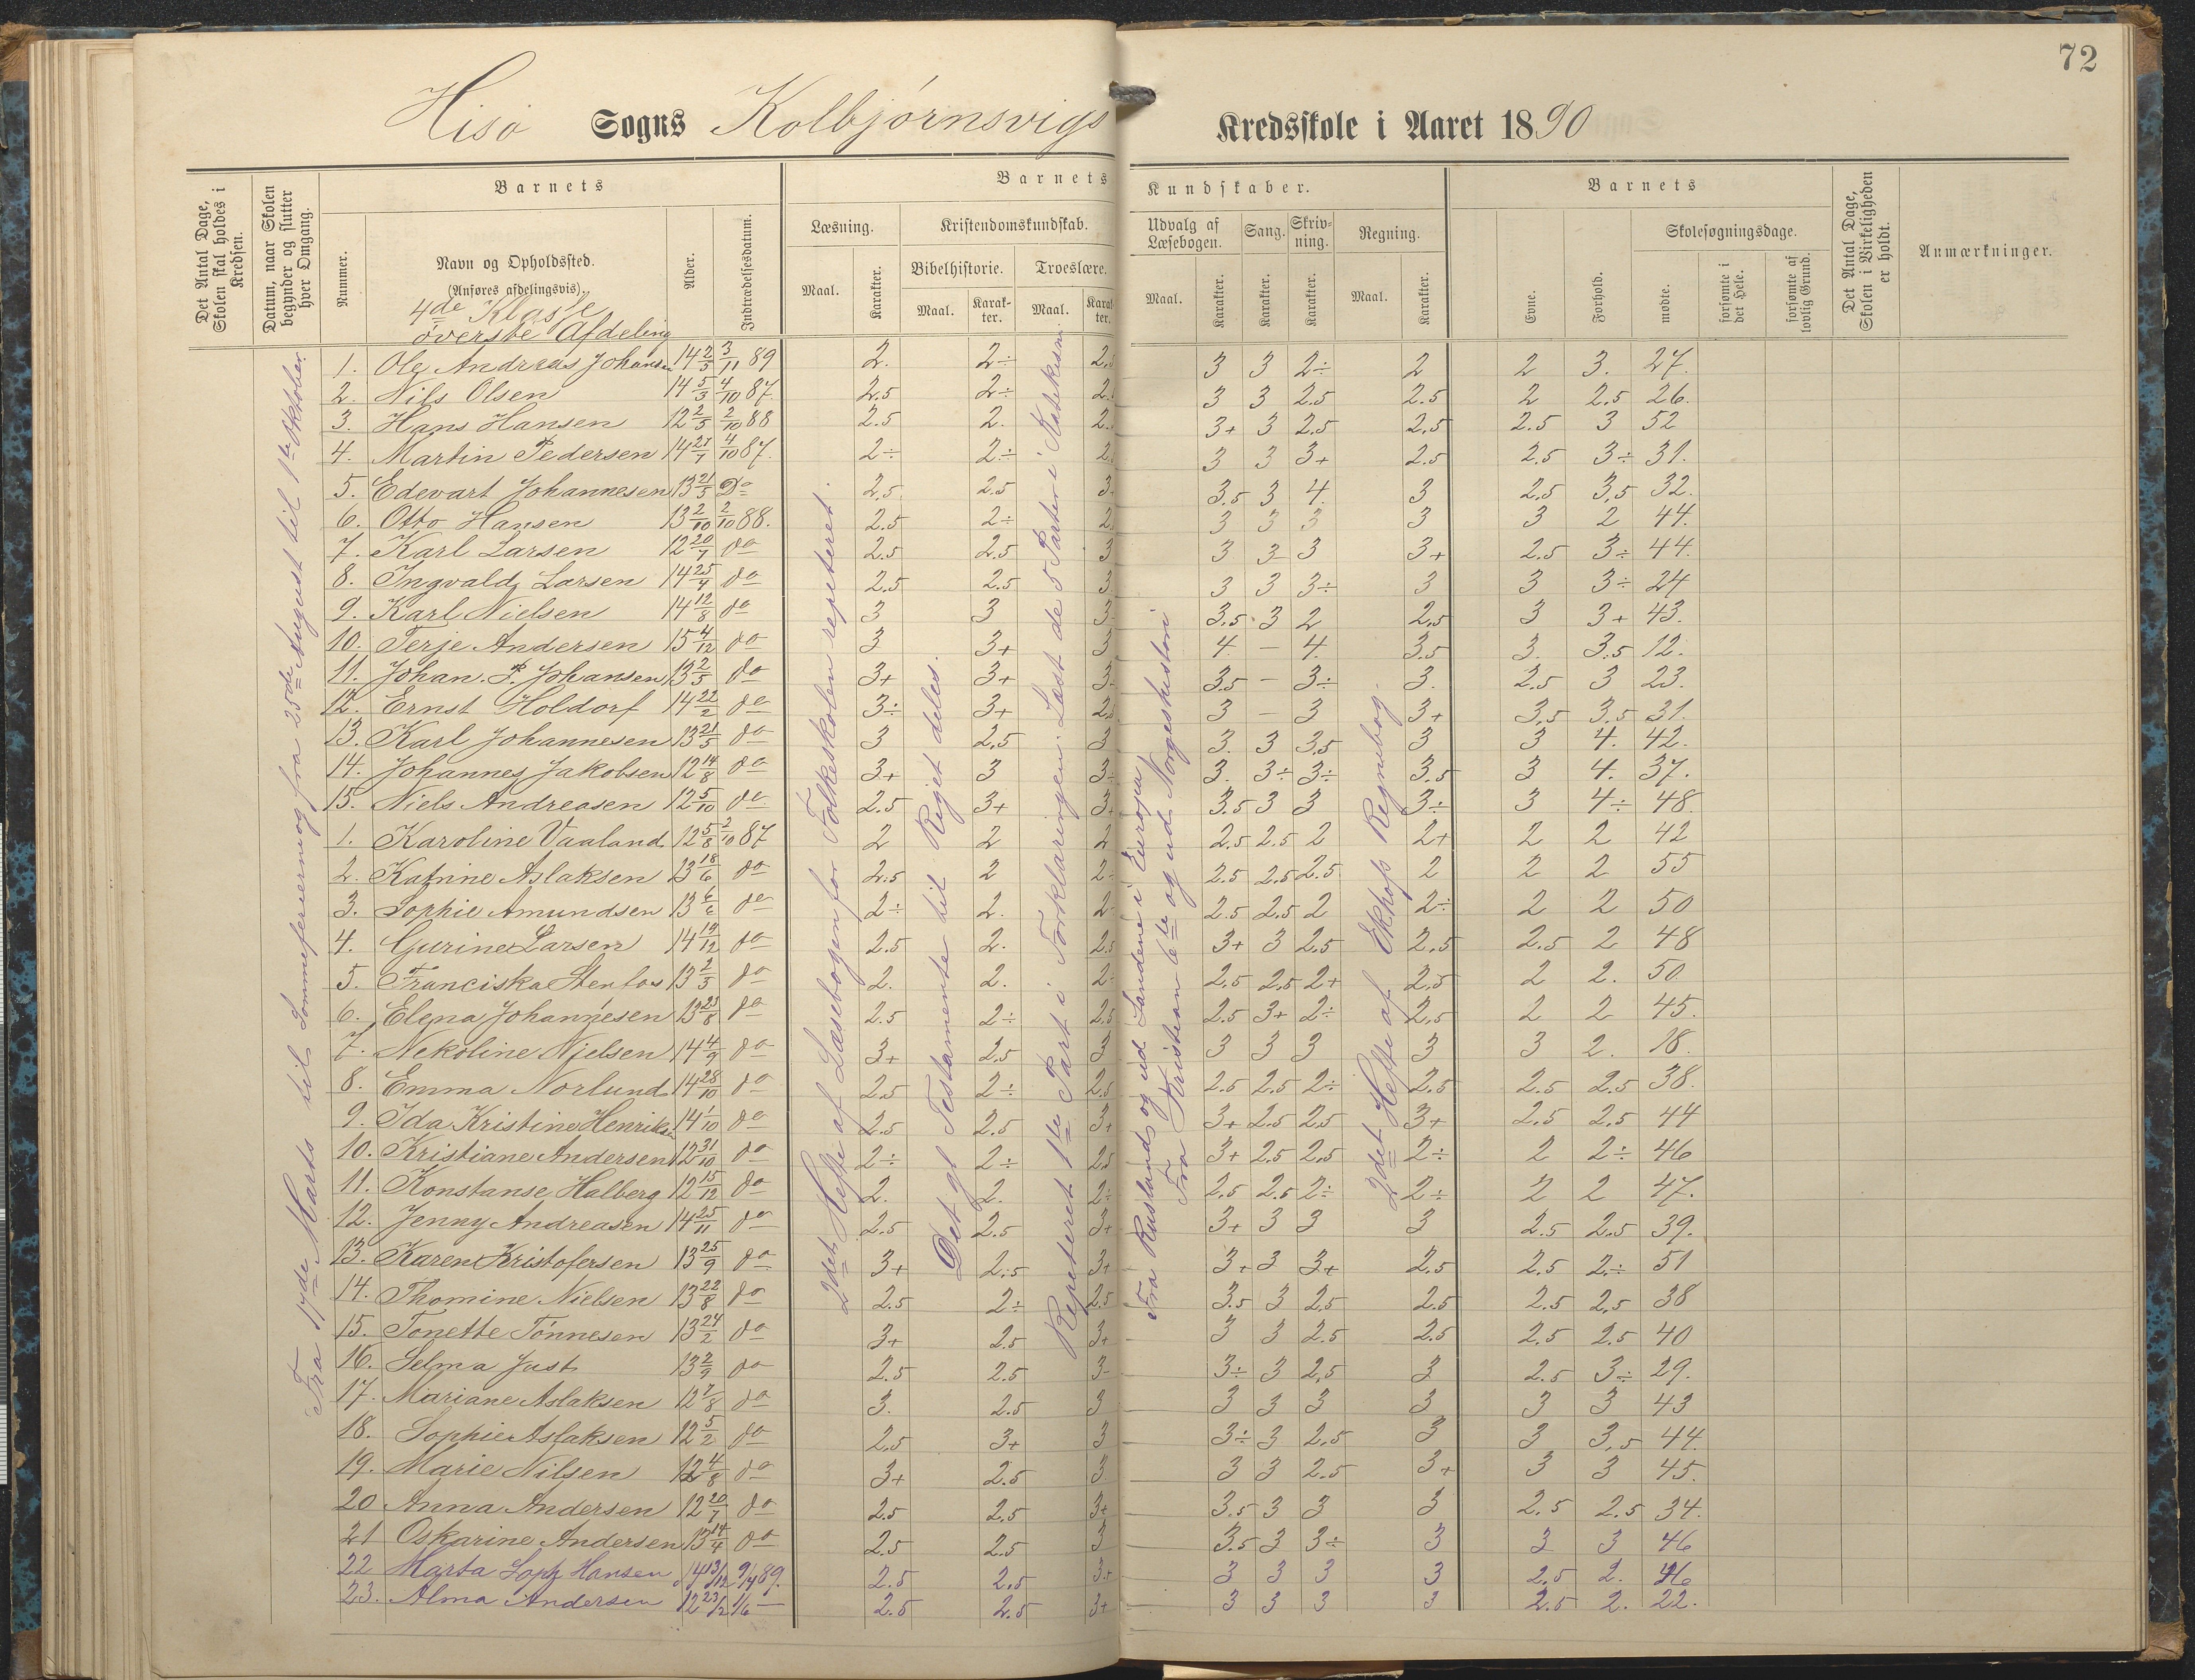 72
Hisö Sogns Kolbjørnsvigs Kredsskole i Aaret 1890
Det Antal Dage, Skolen skal holdes i Kredsen.
Datum, naar Skolen begynder og slutter hver Omgang.
Nummer.
Barnets
Navn og Opholdssted.
(Anføres afdelingsvis).
4de Klasse
øverste Afdeling
Alder.
Indtrædelsesdatum.
Barnets Kundskaber.
Læsning.
Maal. Karakter.
Kristendomskundskab.
Bibelhistorie. Troeslære.
Maal. Karakter. Maal. Karakter.
Udvalg af Læsebogen.
Maal. Karakter.
Sang. Karakter.
Skrivning. Karakter.
Regning.
Maal. Karakter.
Barnets
Evne.
Forhold.
Skolesøgningsdage.
mødte.
forsømte i det Hele.
forsømte af lovlig Grund.
Det Antal Dage, Skolen i Virkeligheden er holdt.
Anmærkninger.
Fra 17de Marts til Sommerferien og fra 25de August til 1ste Oktober.
2det Hefte af Læsebogen for Folkeskolen repeteret.
Det gl Testamente til Riget deles.
Repeteret 1ste Part i Forklaringen. Læst de 5 Parter i Katekismen
Fra Rusland og ud Landene i Europa
Fra Kristian 6te og ud Norgeshistori
2det Hefte af Ekhofs Regnebog.
1. Ole Andreas Johansen 14 2/5 3/11 89 2. 2÷ 2.5 3 3 2÷ 2 2 3. 27.
2. Nils Olsen 14 5/3 4/10 87. 2.5 2÷ 2. 3 3 2.5 2.5 2 2.5 26.
3. Hans Hansen 12 2/5 2/10 88 2.5 2. 2. 3+ 3 2.5 2.5 2.5 3 52
4. Martin Pedersen 14 27/1 4/10 87. 2÷ 2÷ 2. 3 3 3+ 2.5 2.5 3÷ 31.
5. Edevart Johannesen 13 21/5 Do 2.5 2.5 3 3.5 3 4. 3 2.5 3.5 32.
6. Otto Hansen 13 2/10 2/10 88. 2.5 2÷ 2. 3 3 3 3 3 2 44.
7. Karl Larsen 12 20/7 do 2.5 2.5 3 3 3 3 3+ 2.5 3÷ 44.
8. Ingvald Larsen 14 25/4 do 2.5 2.5 3 3 3 3÷ 3 3 3÷ 24
9. Karl Nielsen 14 12/8 do 3 3 3 3.5 3 2 2.5 3 3+ 43.
10. Terje Andersen 15 4/12 do 3 3+ 3 4. — 4. 3.5 3. 3.5 12.
11. Johan. P. Johansen 13 2/5 do 3+ 3+ 3 3.5 — 3÷ 3. 2.5 3 23.
12. Ernst Holdorf 14 22/2 do 3÷ 3+ 2.5 3 — 3 3+ 3.5 3.5 31.
13. Karl Johannesen 13 21/5 do 3 2.5 3 3. 3 3.5 3 3 4. 42.
14. Johannes Jakobsen 12 14/8 do 3+ 3 3÷ 3. 3÷ 3÷ 3.5 3 4. 37.
15. Niels Andreasen 12 5/10 do 2.5 3+ 3+ 3.5 3 3 3÷ 3 4÷ 48.
1. Karoline Vaaland 12 5/8 2/10 87 2 2 2 2.5 2.5 2 2+ 2 2 42
2. Katrine Aslaksen 13 18/6 do 2.5 2 2÷ 2.5 2.5 2.5 2 2 2 55
3. Sophie Amundsen 13 6/6 do 2÷ 2. 2 2.5 2.5 2 2÷ 2 2 50
4. Gurine Larsen 14 19/12 do 2.5 2. 2.5 3+ 3 2.5 2.5 2.5 2 48
5. Franciska Stenfos 13 2/5 do 2. 2. 2÷ 2.5 2.5 2+ 2.5 2 2. 50.
6. Elena Johannesen 13 23/8 do 2.5 2÷ 2.5 2.5 3+ 2÷ 2.5 2 2 45.
7. Nekoline Nielsen 14 4/9 do 3+ 2.5 3 3 3 3 3 3 2. 18.
8. Emma Norlund 14 28/10 do 2.5 2÷ 2.5 2.5 2.5 2÷ 2.5 2.5 2.5 38.
9. Ida Kristine Henriksen 14 1/10 do 2.5 2.5 3+ 3+ 2.5 2.5 3+ 2.5 2.5 44
10. Kristiane Andersen 12 31/10 do 2÷ 2÷ 2.5 3+ 2.5 2.5 2÷ 2 2÷ 46
11. Konstanse Halberg 12 15/12 do 2. 2. 2÷ 2.5 2.5 2÷ 2÷ 2 2 47.
12. Jenny Andreasen 14 25/11 do 2.5 2.5 3+ 3+ 3 3 3 2.5 2.5 39.
13. Karen Kristofersen 13 25/9 do 3+ 2.5 3+ 3+ 3 3+ 2.5 2.5 2÷ 51
14. Thomine Nielsen 13 22/8 do 2.5 2÷ 2.5 3.5 3 2.5 2.5 2.5 2.5 38
15. Tonette Tönnesen 13 24/2 do 3+ 2.5 3+ 3 3 2.5 2.5 2.5 2.5 40
16. Selma Just 13 2/9 do 2.5 2.5 3 3÷ 3 2.5 3 2.5 3÷ 29.
17. Mariane Aslaksen 12 7/8 do 3. 2.5 3 3 3 3 3 3 3 43
18. Sophie Aslaksen 12 5/2 do 2.5 3+ 3 3÷ 3 2.5 3 3 3.5 44.
19. Marie Nilsen 12 4/8 do 3+ 2.5 3 3 3 2.5 3+ 3 3 45.
20 Anna Andersen 12 20/7 do 2.5 2.5 3+ 3.5 3 3 3 2.5 2.5 34.
21 Oskarine Andersen 13 14/4 do 2.5 2.5 3 3.5 3 3÷ 3 3 3 46
22 Marta Soph Hansen 14 13/12 9/4 89. 2.5 2.5 3+ 3 3 3 3 2.5 2. 46
23. Alma Andersen 12 23/2 1/6 — 2.5 2.5 3+ 3 3 3 3 2.5 2. 22.